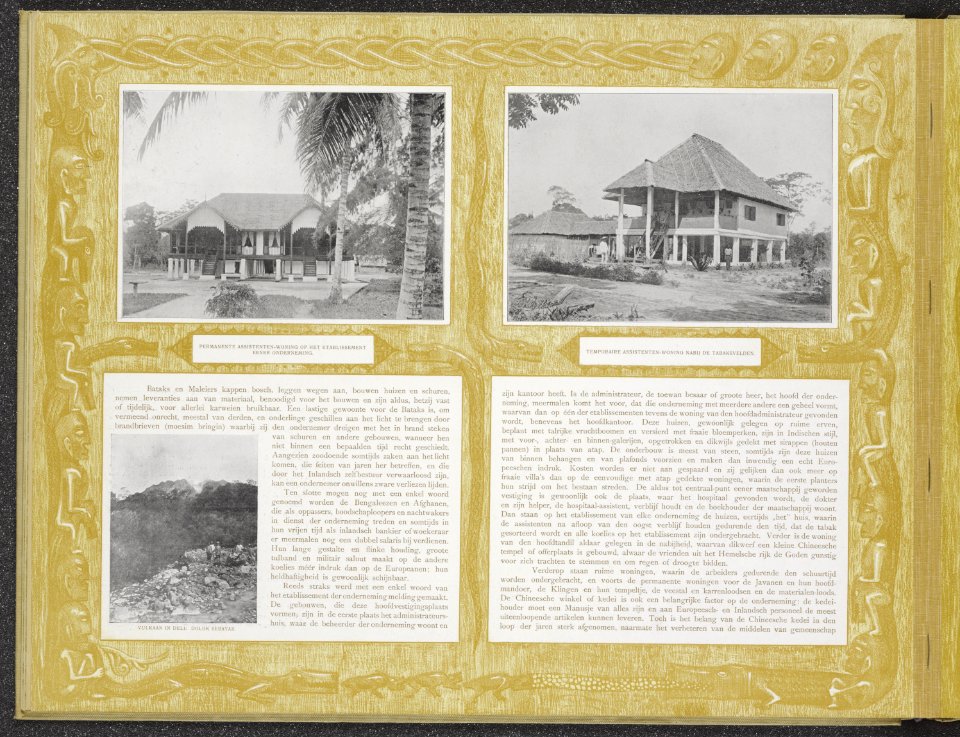 PERMANENTE ASSISTENTEN-WONING OP HET ETABLISSEMENT
EENER ONDERNEMING.
TEMPORAIRE ASSISTENTEN-WONING NABIJ DE TABAKSVELDEN.
Bataks en Maleiers kappen bosch, leggen wegen aan, bouwen huizen en schuren,
nemen leveranties aan van materiaal, benoodigd voor het bouwen en zijn aldus, hetzij vast
of tijdelijk, voor allerlei karweien bruikbaar. Een lastige gewoonte voor de Bataks is, om
vermeend onrecht, meestal van derden, en onderlinge geschillen aan het licht te brengen door
brandbrieven (moesim bringin) waarbij zij den ondernemer dreigen met het in brand steken
van schuren en andere gebouwen, wanneer hen
niet binnen een bepaalden tijd recht geschiedt.
Aangezien zoodoende somtijds zaken aan het licht
komen, die feiten van jaren her betreffen, en die
door het Inlandsch zelfbestuur verwaarloosd zijn,
kan een ondernemer onwillens zware verliezen lijden.
Ten slotte mogen nog met een enkel woord
genoemd worden de Bengaleezen en Afghanen,
die als oppassers, boodschaploopers en nachtwakers
in dienst der onderneming treden en somtijds in
hun vrijen tijd als inlandsch bankier of woekeraar
er meermalen nog een dubbel salaris bij verdienen.
Hun lange gestalte en flinke houding, groote
tulband en militair saluut maakt op de andere
koelies méér indruk dan op de Europeanen; hun
heldhaftigheid is gewoonlijk schijnbaar.
Reeds straks werd met een enkel woord van
het etablissement der onderneming melding gemaakt.
De gebouwen, die deze hoofdvestigingsplaats
vormen, zijn in de eerste plaats het administrateurs-
huis, waar de beheerder der onderneming woont en
VULKAAN IN DELI: DOLOK SEBAYAK
zijn kantoor heeft. Is de administrateur, de toewan besaar of groote heer, het hoofd der onder-
neming, meermalen komt het voor, dat die onderneming met meerdere andere een geheel vormt,
waarvan dan op één der etablissementen tevens de woning van den hoofdadministrateur gevonden
wordt, benevens het hoofdkantoor. Deze huizen, gewoonlijk gelegen op ruime erven,
beplant met talrijke vruchtboomen en versierd met fraaie bloemperken, zijn in Indischen stijl,
met voor-, achter- en binnen-galerijen, opgetrokken en dikwijls gedekt met sirappen (houten
pannen) in plaats van atap. De onderbouw is meest van steen, somtijds zijn deze huizen
van binnen behangen en van plafonds voorzien en maken dan inwendig een echt Euro-
peeschen indruk. Kosten worden er niet aan gespaard en zij gelijken dan ook meer op
fraaie villa's dan op de eenvoudige met atap gedekte woningen, waarin de eerste planters
hun strijd om het bestaan streden. De aldus tot centraal-punt eener maatschappij geworden
vestiging is gewoonlijk ook de plaats, waar het hospitaal gevonden wordt, de dokter
en zijn helper, de hospitaal-assistent, verblijf houdt en de boekhouder der maatschappij woont.
Dan staan op het etablissement van elke onderneming de huizen, eertijds „het" huis, waarin
de assistenten na afloop van den oogst verblijf houden gedurende den tijd, dat de tabak
gesorteerd wordt en alle koelies op het etablissement zijn ondergebracht. Verder is de woning
van den hoofdtandil aldaar gelegen in de nabijheid, waarvan dikwerf een kleine Chineesche
tempel of offerplaats is gebouwd, alwaar de vrienden uit het Hemelsche rijk de Goden gunstig
voor zich trachten te stemmen en om regen of droogte bidden.
Verderop staan ruime woningen, waarin de arbeiders gedurende den schuurtijd
worden ondergebracht, en voorts de permanente woningen voor de Javanen en hun hoofd-
mandoor, de Klingen en hun tempeltje, de veestal en karrenloodsen en de materialen-loods.
De Chineesche winkel of kedei is ook een belangrijke factor op de onderneming: de kedei-
houder moet een Manusje van alles zijn en aan Europeesch- en Inlandsch personeel de meest
uiteenloopende artikelen kunnen leveren. Toch is het belang van de Chineesche kedei in den
loop der jaren sterk afgenomen, naarmate het verbeteren van de middelen van gemeenschap